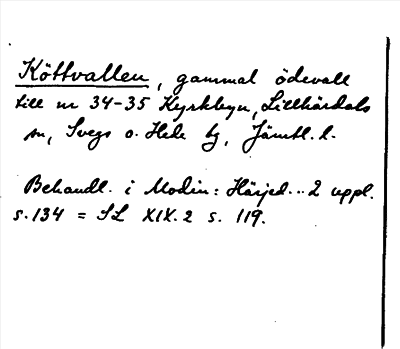 Köttvallen, gammal ödevall
till nr 34-35 Kyrkbyn, Lillhärdals
sn, Svegs o. Hede tg, Jämtl. l.
Behandl. i Modin: Härjed... 2 uppl.
s. 134 = SL XIX.2 s. 119.